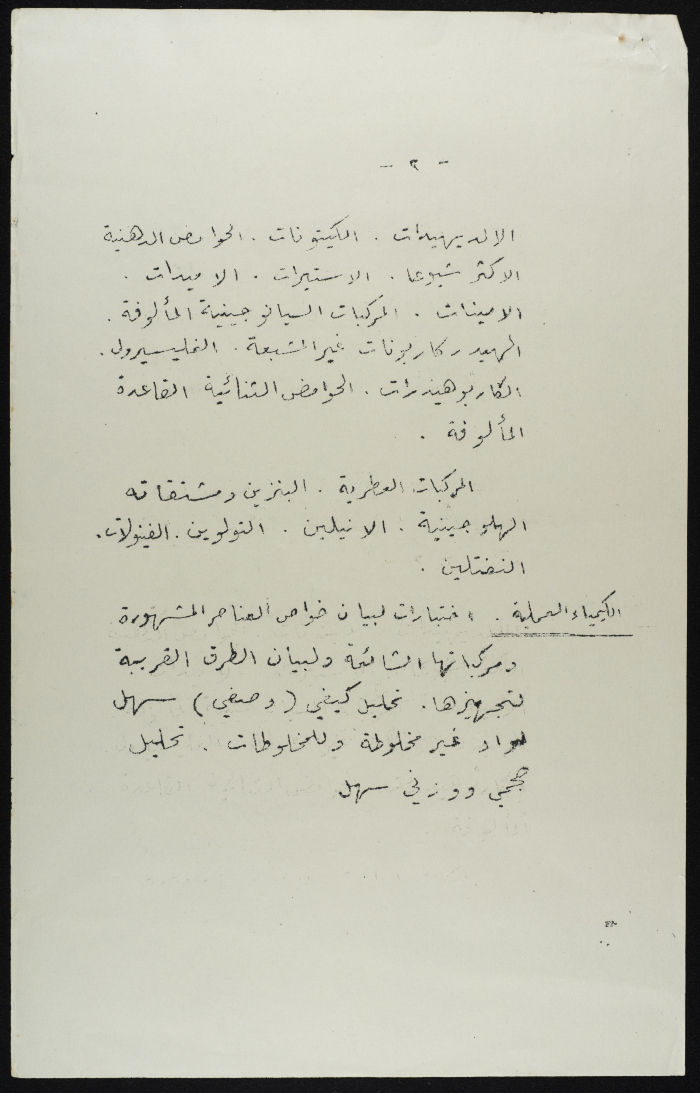 - ٢ -
الالديهيدات . الكيتونات . الحوامض الدهنية
الاكثر شيوعا . الاستيرات . الاميدات .
الامينات . المركبات السيانوجينية المألوفة .
الهيدروكاربونات غير المشبعة . الغليسيرول .
الكاربوهيدرات . الحوامض الثنائية القاعدة
المألوفة .
المركبات العطرية . البنزين ومشتقاته
الهلوجينية . الانيلين . التولوين . الفينولات .
النفتلين .
الكيمياء العملية . اختبارات لبيان خواص العناصر المشهورة
ومركباتها الشائعة ولبيان الطرق القريبة
لتجهيزها . تحليل كيفي ( وصفي ) سهل
لمواد غير مخلوطة وللمخلوطات . تحليل
حجمي ووزني سهل